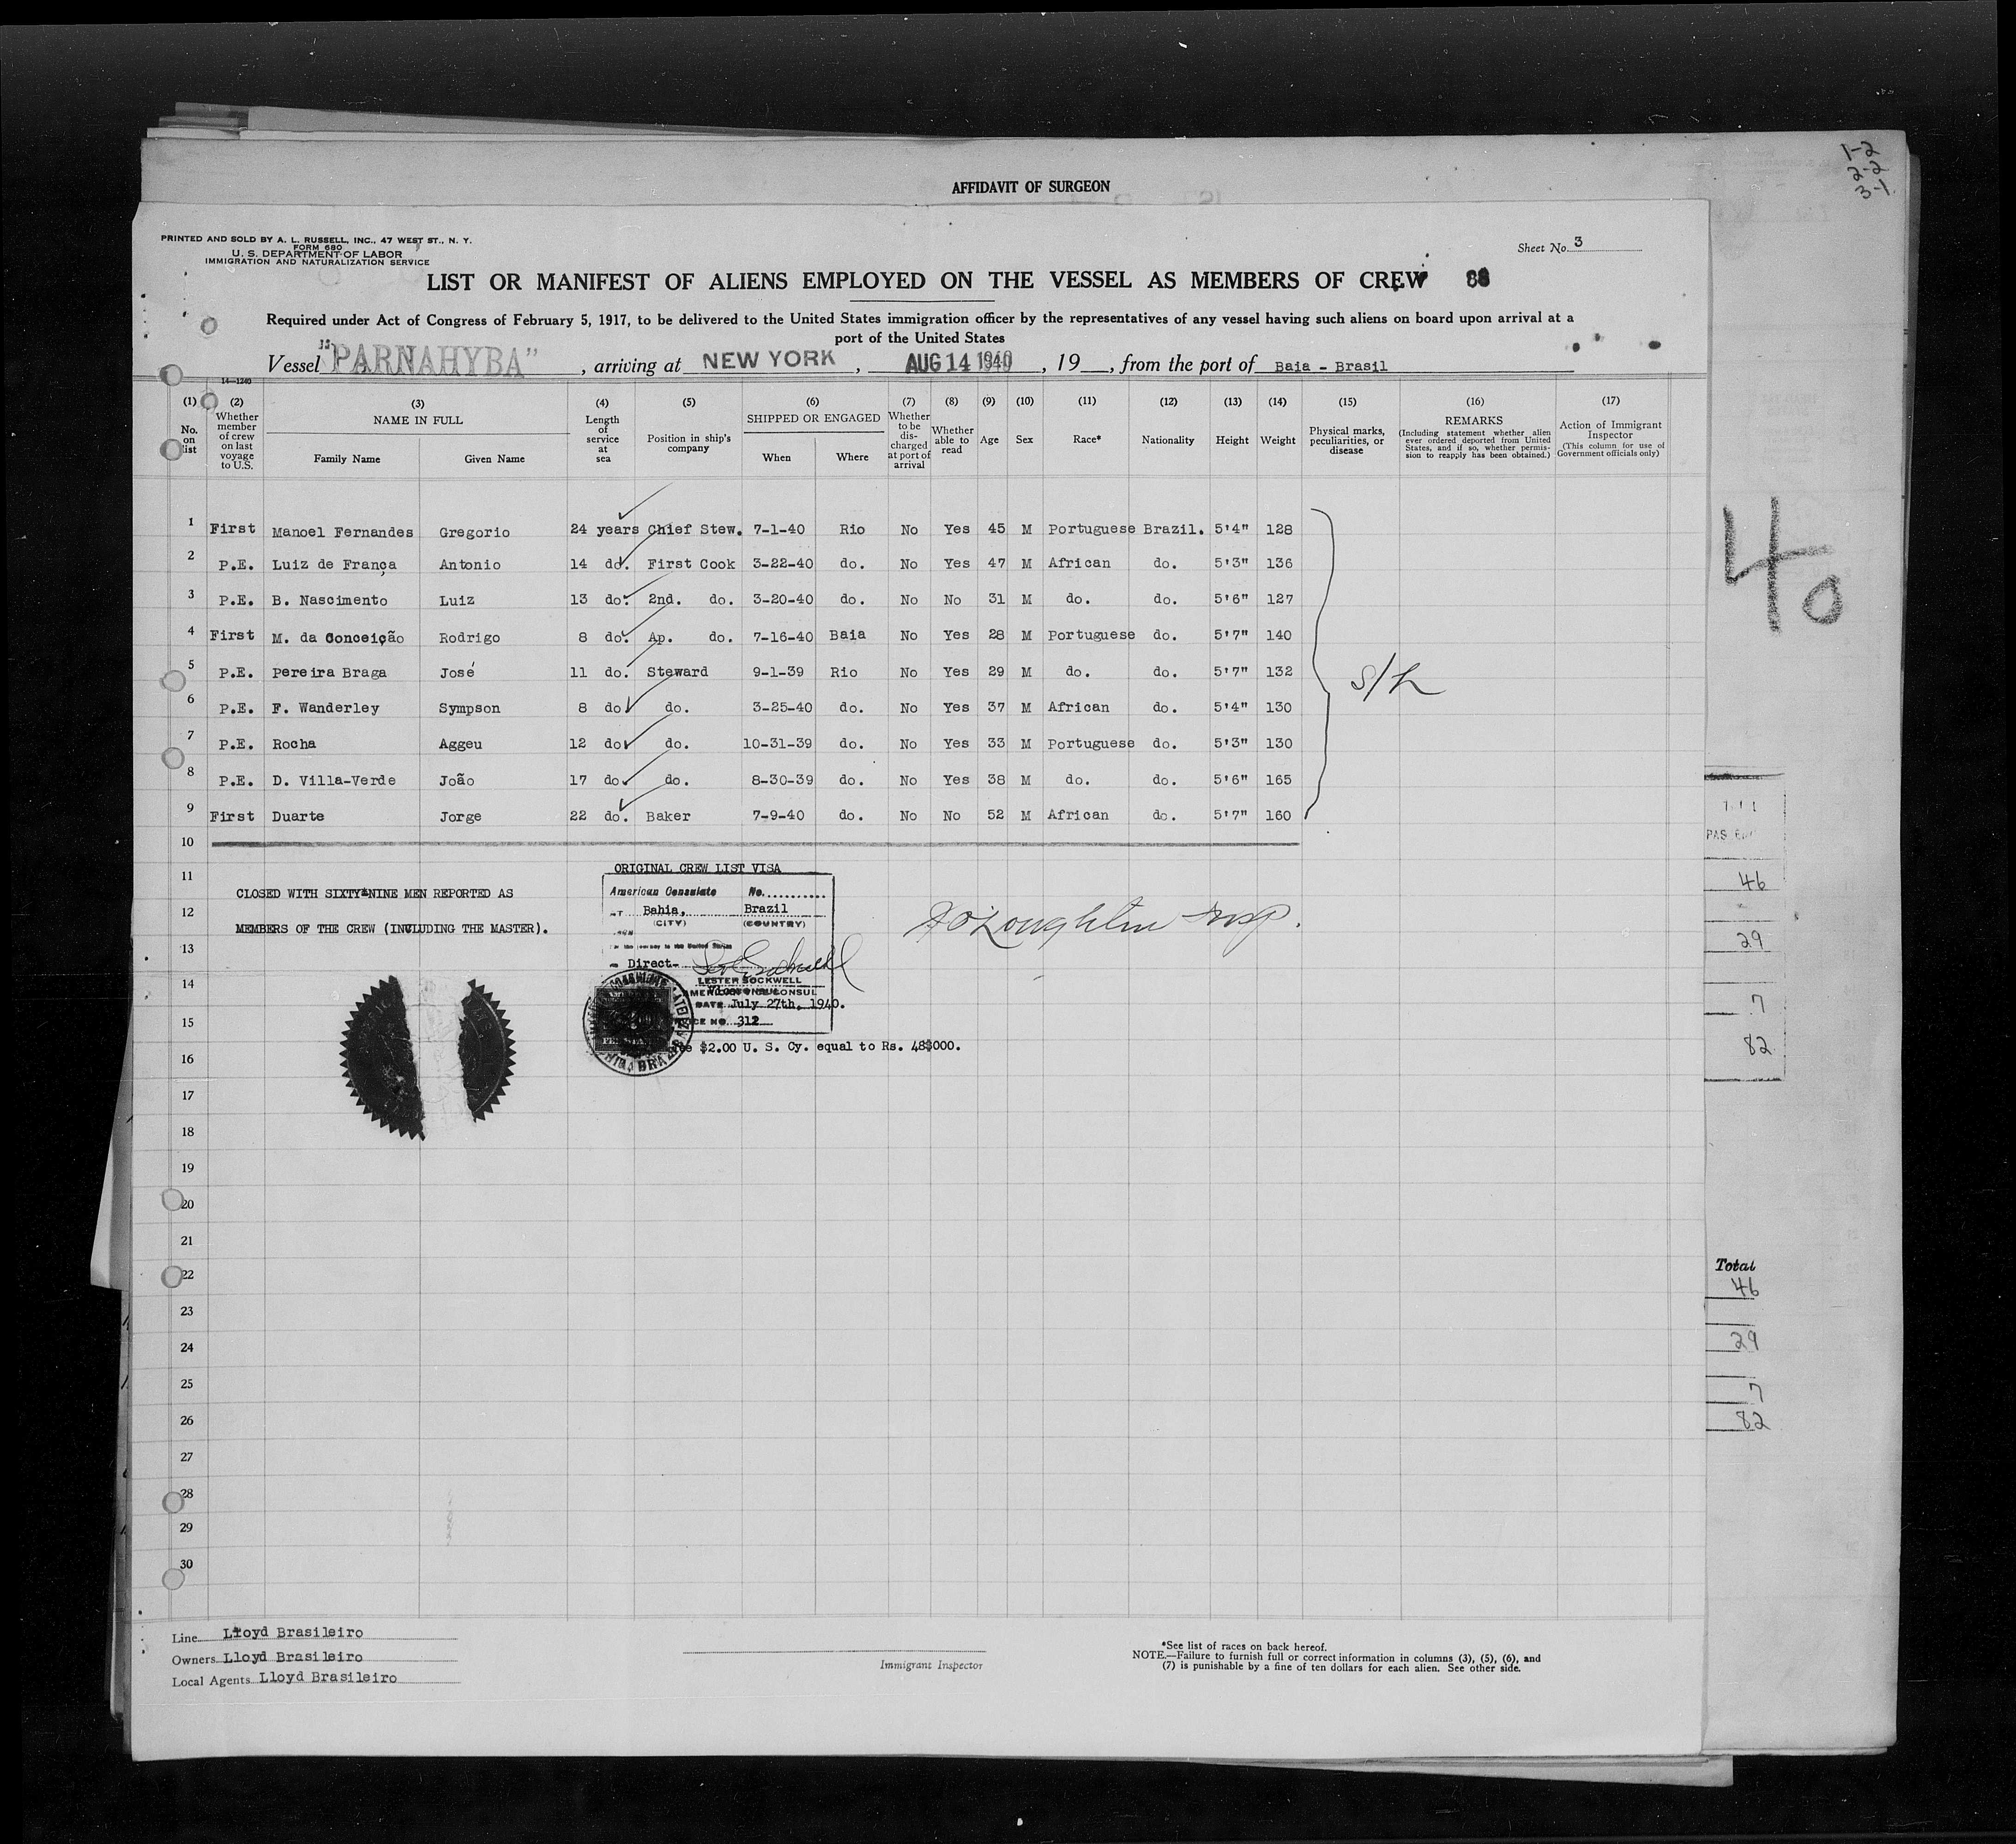 1-2
2-2
3-1
AFFIDAVIT OF SURGEON
PRINTED AND SOLD BY A. L. RUSSELL, INC., 47 WEST ST., N. Y.
FORM 680
U. S. DEPARTMENT OF LABOR
IMMIGRATION AND NATURALIZATION SERVICE
Sheet No. 3
LIST OR MANIFEST OF ALIENS EMPLOYED ON THE VESSEL AS MEMBERS OF CREW
Required under Act of Congress of February 5, 1917, to be delivered to the United States immigration officer by the representatives of any vessel having such aliens on board upon arrival at a
port of the United States
Vessel "PARNAHYBA", arriving at NEW YORK, AUG 14 1940, 19__, from the port of Baia - Brasil
14—1240
(1) No. on list
(2) Whether member of crew on last voyage to U.S.
(3) NAME IN FULL Family Name Given Name
(4) Length of service at sea
(5) Position in ship's company
(6) SHIPPED OR ENGAGED When Where
(7) Whether to be discharged at port of arrival
(8) Whether able to read
(9) Age
(10) Sex
(11) Race*
(12) Nationality
(13) Height
(14) Weight
(15) Physical marks, peculiarities, or disease
(16) REMARKS (Including statement whether alien ever ordered deported from United States, and if so, whether permission to reapply has been obtained.)
(17) Action of Immigrant Inspector (This column for use of Government officials only)
1 First Manoel Fernandes Gregorio 24 years Chief Stew. 7-1-40 Rio No Yes 45 M Portuguese Brazil. 5'4" 128
2 P.E. Luiz de França Antonio 14 do. First Cook 3-22-40 do. No Yes 47 M African do. 5'3" 136
3 P.E. B. Nascimento Luiz 13 do. 2nd. do. 3-20-40 do. No No 31 M do. do. 5'6" 127
4 First M. da Conceição Rodrigo 8 do. Ap. do. 7-16-40 Baia No Yes 28 M Portuguese do. 5'7" 140
5 P.E. Pereira Braga José 11 do. Steward 9-1-39 Rio No Yes 29 M do. do. 5'7" 132
6 P.E. F. Wanderley Sympson 8 do do. 3-25-40 do. No Yes 37 M African do. 5'4" 130
7 P.E. Rocha Aggeu 12 do do. 10-31-39 do. No Yes 33 M Portuguese do. 5'3" 130
8 P.E. D. Villa-Verde João 17 do do. 8-30-39 do. No Yes 38 M do. do. 5'6" 165
9 First Duarte Jorge 22 do. Baker 7-9-40 do. No No 52 M African do. 5'7" 160
10
11
12
13
14
15
16
17
18
19
20
21
22
23
24
25
26
27
28
29
30
CLOSED WITH SIXTY-NINE MEN REPORTED AS
MEMBERS OF THE CREW (INCLUDING THE MASTER).
ORIGINAL CREW LIST VISA
American Consulate No.
AT Bahia, Brazil
(CITY) (COUNTRY)
Direct-
AMERICAN CONSUL
DATE July 27th, 1940.
312
$2.00 U. S. Cy. equal to Rs. 48$000.
40
46
29
7
82
Total
46
29
7
82
Line Lloyd Brasileiro
Owners Lloyd Brasileiro
Local Agents Lloyd Brasileiro
Immigrant Inspector
*See list of races on back hereof.
NOTE.—Failure to furnish full or correct information in columns (3), (5), (6), and
(7) is punishable by a fine of ten dollars for each alien. See other side.